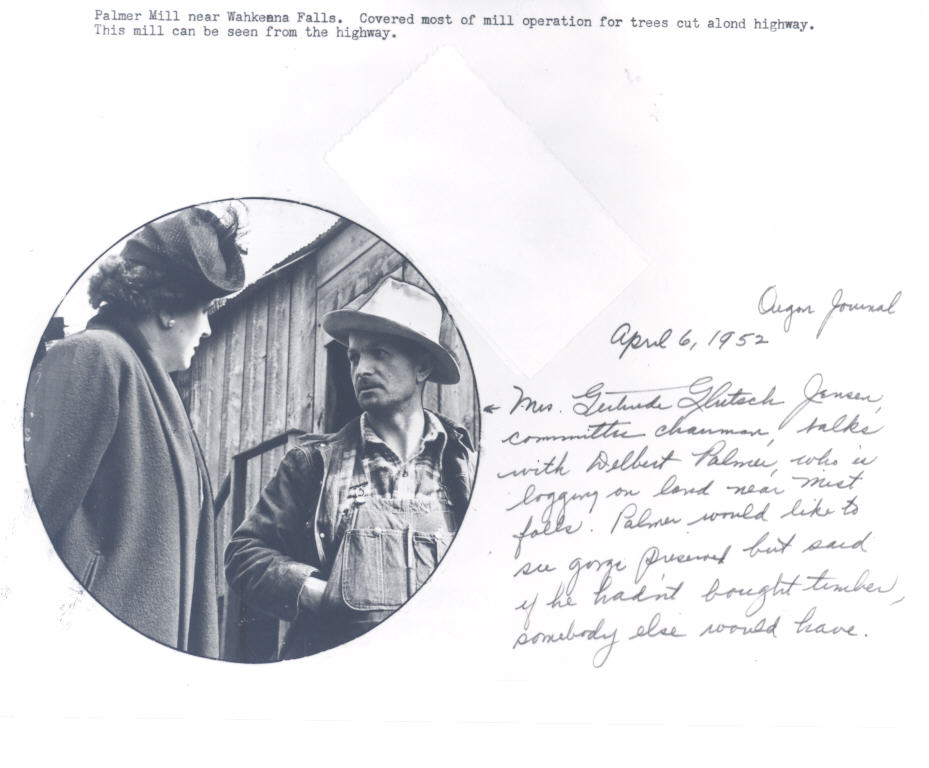 Palmer Mill near Wahkeena Falls.  Covered most of mill operation for trees cut alond highway.
This mill can be seen from the highway.
Oregon Journal
April 6, 1952
Mrs. Gertrude Glutsch Jensen,
committee chairman, talks
with Delbert Palmer, who is
logging on land near Mist
falls. Palmer would like to
see gorge preserved but said
if he hadn't bought timber,
somebody else would have.